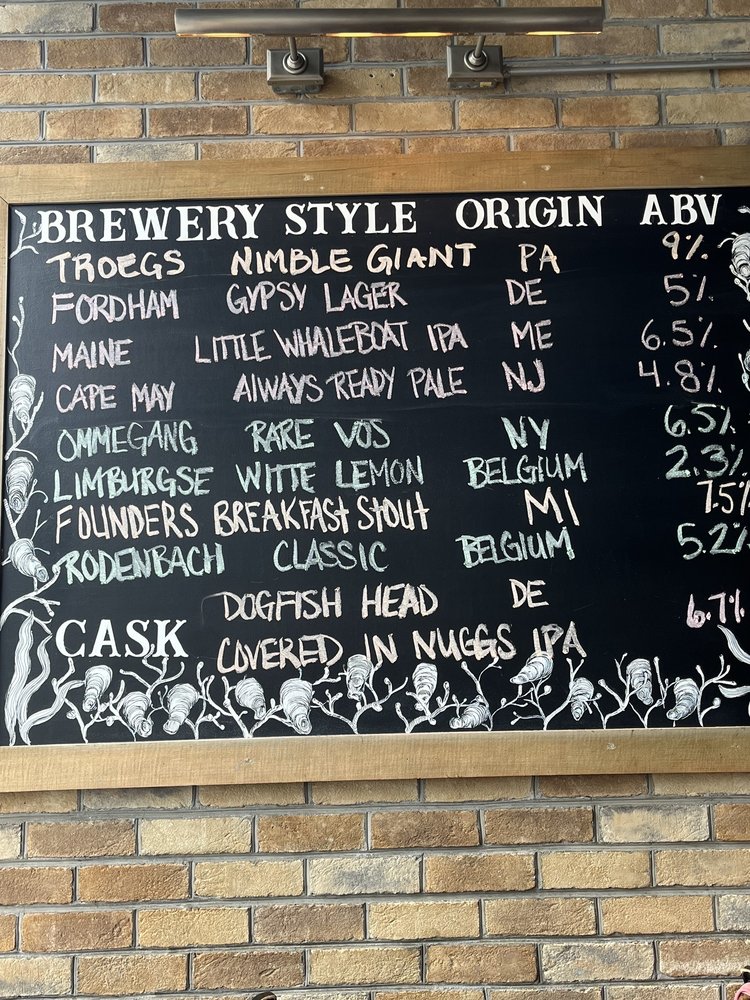 BREWERY STYLE ORIGIN ABV
TROEGS NIMBLE GIANT PA 9%
FORDHAM GYPSY LAGER DE 5%
MAINE LITTLE WHALEBOAT IPA ME 6.5%
CAPE MAY AlWAYS READY PALE NJ 4.8%
OMMEGANG RARE VOS NY 6.5%
LIMBURGSE WITTE LEMON BELGIUM 2.3%
FOUNDERS BREAKFAST STOUT MI 7.5%
RODENBACH CLASSIC BELGIUM 5.2%
DOGFISH HEAD DE 6.7%
CASK COVERED IN NUGGS IPA